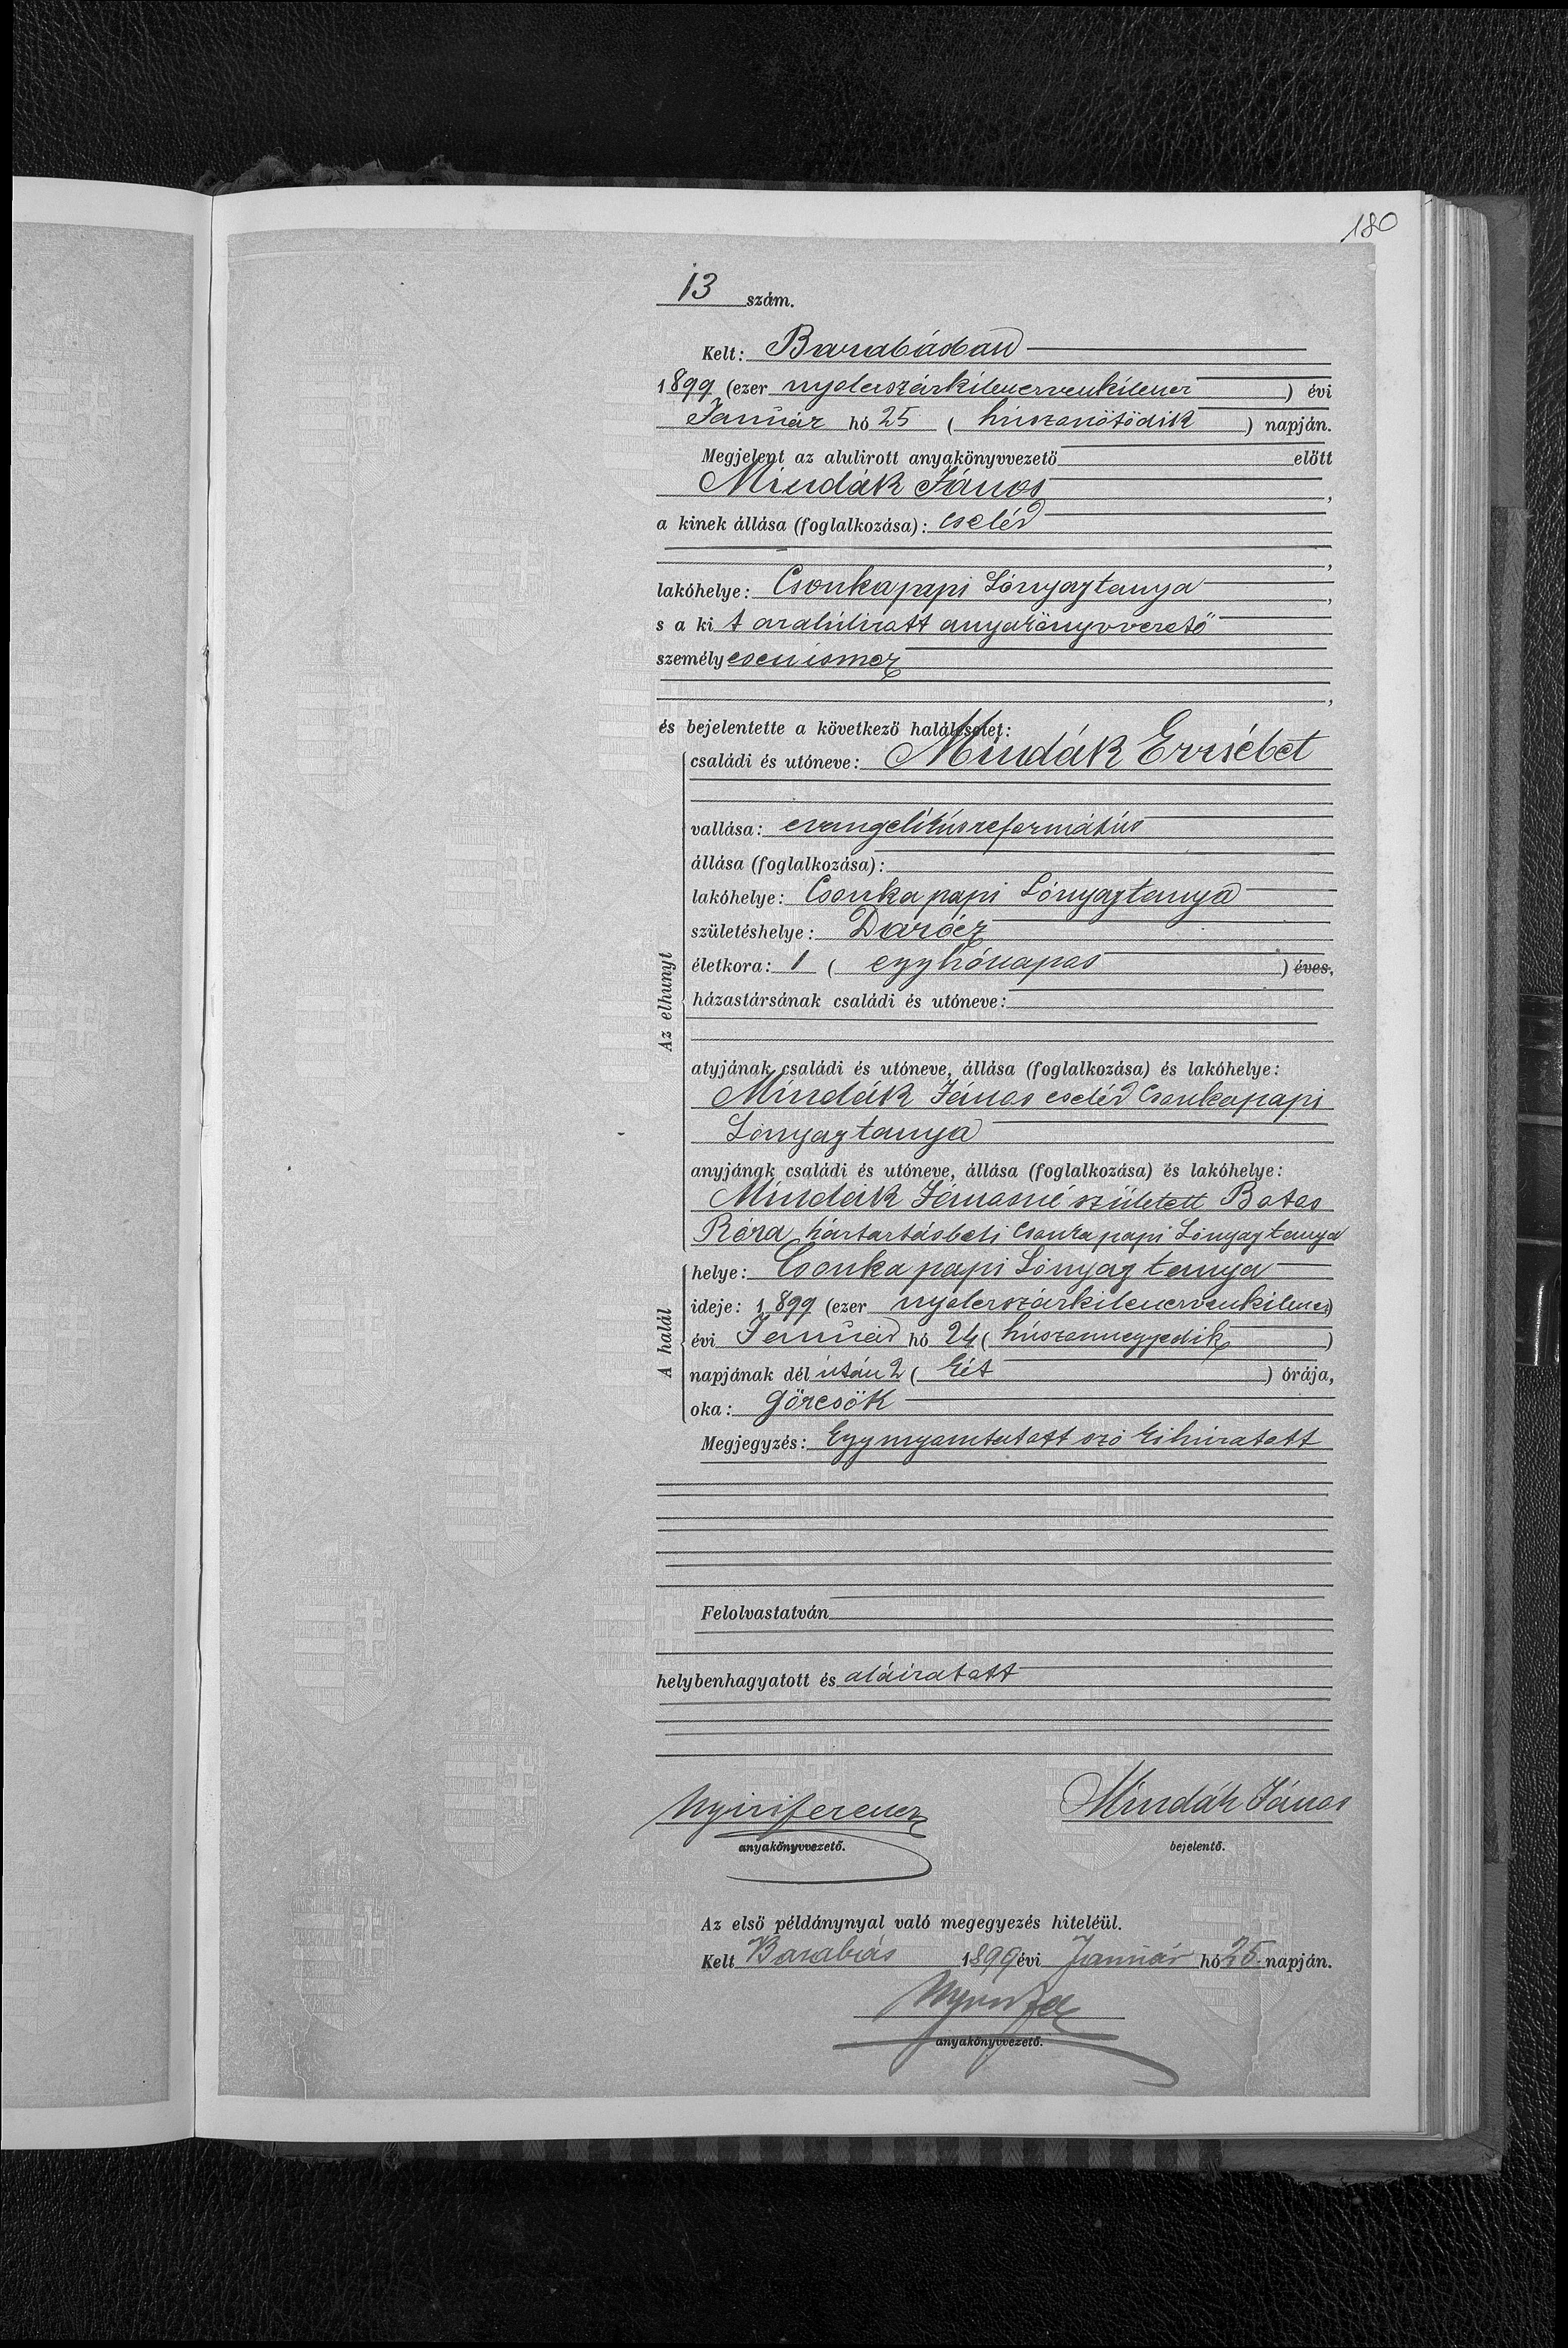 180
13 szám.
Kelt: Barabásban
1899 (ezer nyolczszázkilenczvenkilencz) évi
Január hó 25 (húszonötödik) napján.
Megjelent az alulirott anyakönyvvezető előtt
Mindák János,
a kinek állása (foglalkozása): cseléd
,
lakóhelye: Csonkapapi Lónyaytanya,
s a ki t azalúlirott anyakönyvvezető
személyesen ismer
,
és bejelentette a következő halálesetet:
családi és utóneve: Mindák Erzsébet
vallása: evangelikusreformátus
állása (foglalkozása):
lakóhelye: Csonka papi Lónyaytanya
születéshelye: Darócz
életkora: 1 (egyhónapos) éves,
házastársának családi és utóneve:
Az elhunyt
atyjának családi és utóneve, állása (foglalkozása) és lakóhelye:
Mindák János cseléd Csonkapapi
Lónyaytanya
anyjának családi és utóneve, állása (foglalkozása) és lakóhelye:
Mindák Jánosné született Batas
háztartásbeli Csonka papi Lónyaytanya
helye: Csonka papi Lónyay tanya
ideje: 1899 (ezer nyolczszázkilenczvenkilencz)
évi Január hó 24 (húszonnegyedik)
A halál
napjának dél után 2 (két) órája,
oka: görcsök
Megjegyzés: Egy nyomtatott szó kihúzatott
Felolvastatván
helybenhagyatott és aláiratott
Nyiri ferencz Mindák János
anyakönyvvezető. bejelentő.
Az első példánynyal való megegyezés hiteléül.
Kelt Barabás 1899 évi Január hó 25. napján.
anyakönyvvezető.